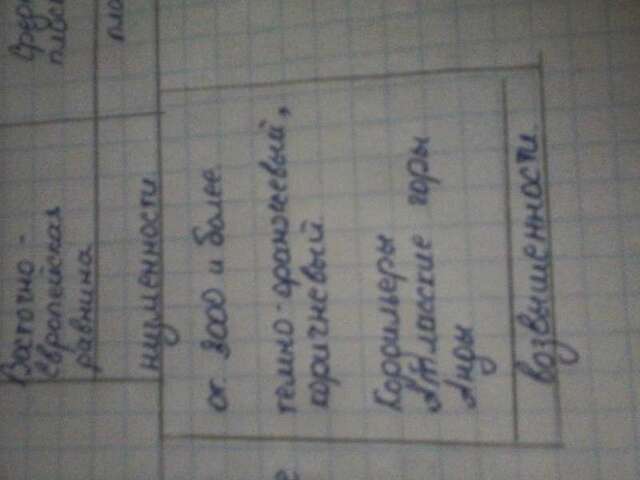 Восточно-
Европейская
равнина
низменности
от 2000 и более
темно-оранжевый,
коричневый
Кордильеры
Атласские горы
Анды
возвышенности